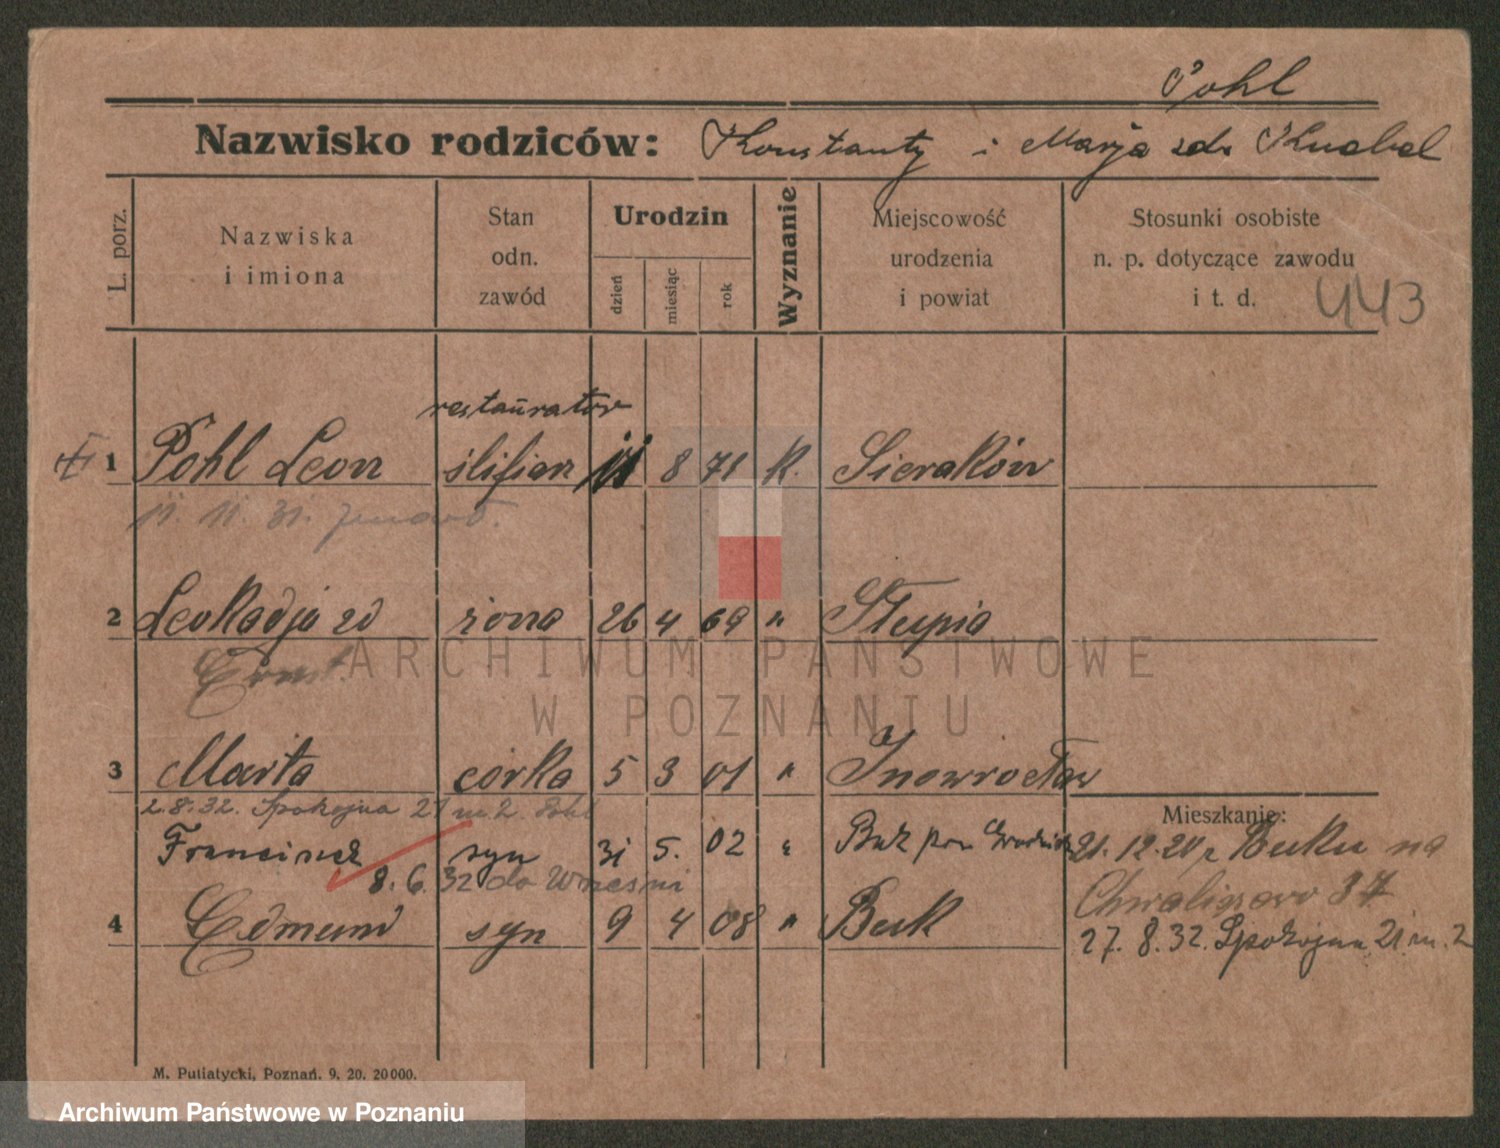 Pohl
Nazwisko rodziców: Konstanty i Marja zd. Knabel
L. porz.
Nazwiska i imiona
Stan odn. zawód
Urodzin
dzień
miesiąc
rok
Wyznanie
Miejscowość urodzenia i powiat
Stosunki osobiste n. p. dotyczące zawodu i t. d.
443
restaurator
1 Pohl Leon 8 71 k. Sieraków
11. 11. 31.
2 Leokadja zd żona 26 4 69 " Słupia
Ernst.
3 Marta córka 5 3 01 " Inowrocław
2.8.32. Spokojna 21 m. 2. Pohl
Mieszkanie:
Franciszek syn 31 5. 02 " Buk pow. Grodzisk
21.12.20 z Buku na
8. 6. 32 do Wrześni
Chwaliszewo 37
4 Edmund syn 9 4 08 " Buk
27. 8. 32. Spokojna 21 m. 2
M. Putiatycki, Poznań. 9. 20. 20000.
ARCHIWUM PAŃSTWOWE
W POZNANIU
Archiwum Państwowe w Poznaniu